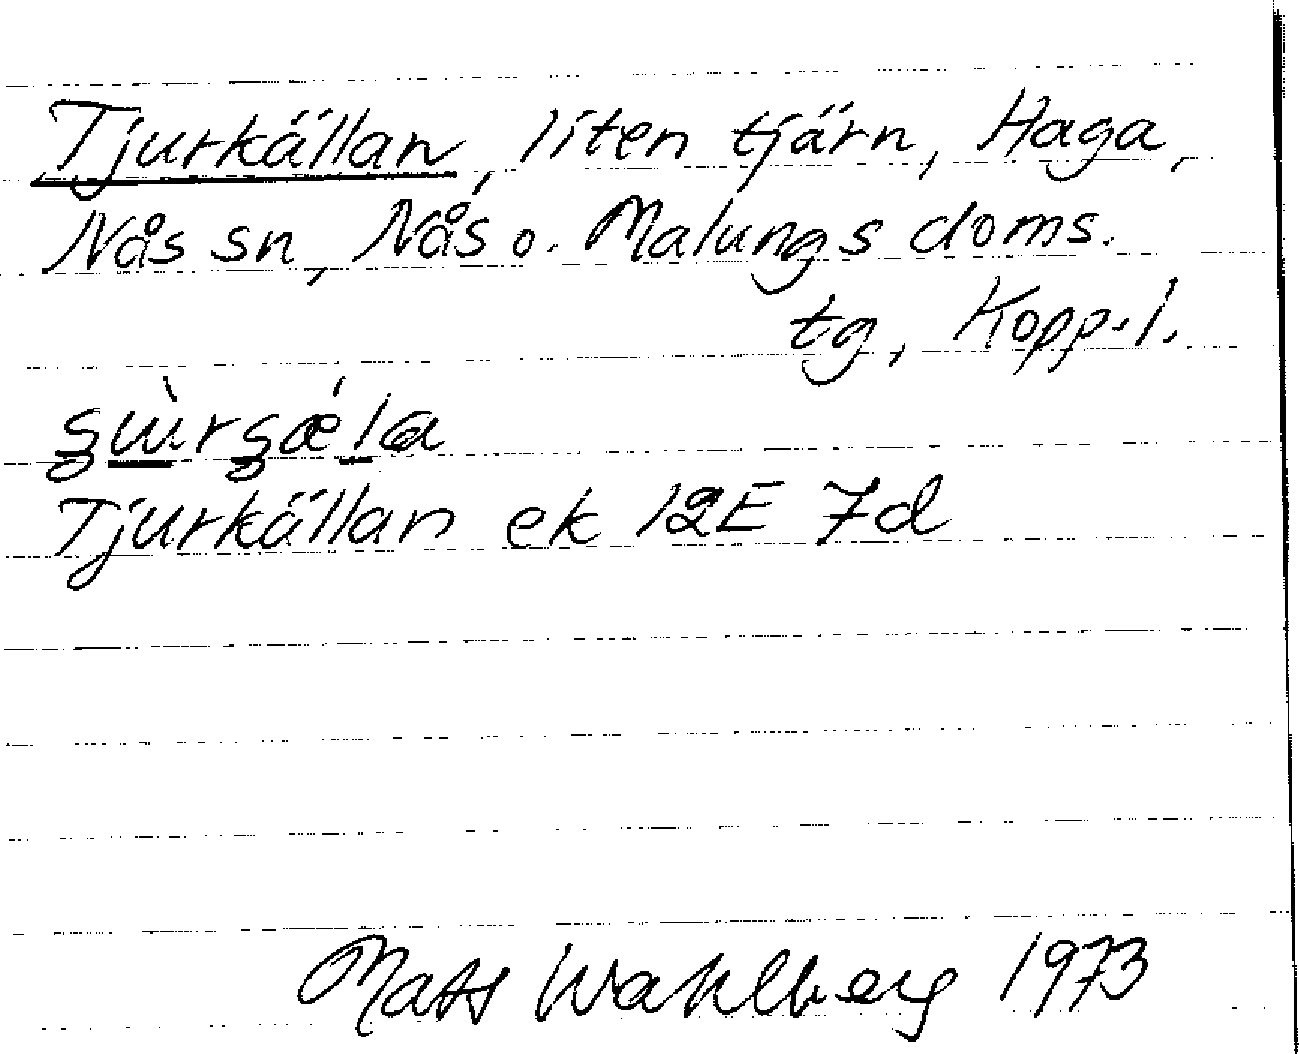 Tjurkällan, liten tjärn, Haga,
Nås sn, Nås o. Malungs doms.
tg, Kopp. l.
Tjurkällan ek 12E 7d
Mats Wahlberg 1973